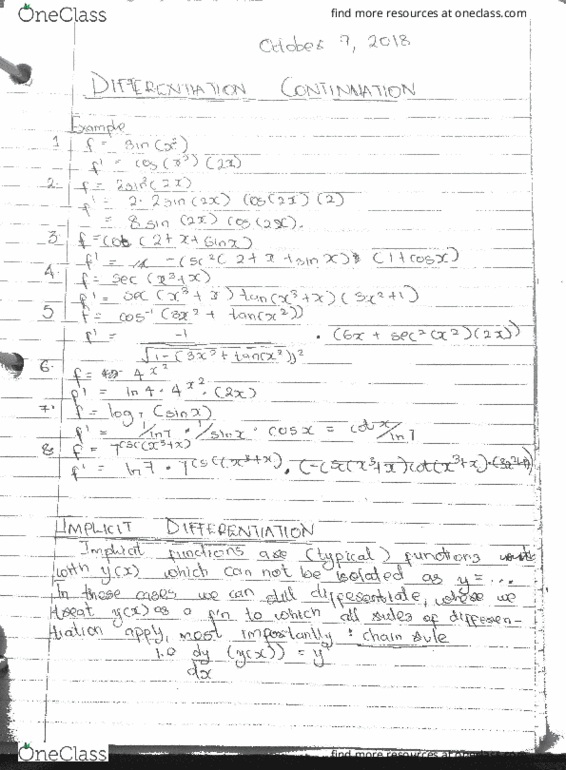 OneClass
find more resources at oneclass.com
October 7, 2018
DIFFERENTIATION CONTINNATION
Example
1 f = sin(x²)
f' = cos(x²) (2x)
2. f = 2sin²(2x)
f' = 2·2sin(2x) cos(2x) (2)
= 8 sin (2x) cos(2x).
3. f = cot (2+x+sinx)
f' = -csc²(2+x+sinx) (1+cosx)
4. f = sec(x³+x)
f' = sec(x³+x) tan(x³+x) (3x²+1)
5 f = cos⁻¹(3x² + tan(x²))
f' = -1/√(1-(3x²+tan(x²))² · (6x + sec²(x²)(2x))
6. f = 4^x²
f' = ln4 · 4^x² · (2x)
7. f = log₇(sinx)
f' = 1/ln7 · 1/sinx · cosx = cotx/ln7
8 f = 7^csc(x³+x)
f' = ln7 · 7^csc(x³+x) · (-csc(x³+x)cot(x³+x)·(3x²+1)
IMPLICIT DIFFERENTIATION
Implicit functions are (typical) functions
with y(x) which can not be isolated as y = ...
In these cases we can still differentiate, where we
treat y(x) as a f'n to which all rules of differen-
tiation apply, most importantly : chain rule
i.e dy/dx (y(x)) = y'
OneClass
find more resources at oneclass.com